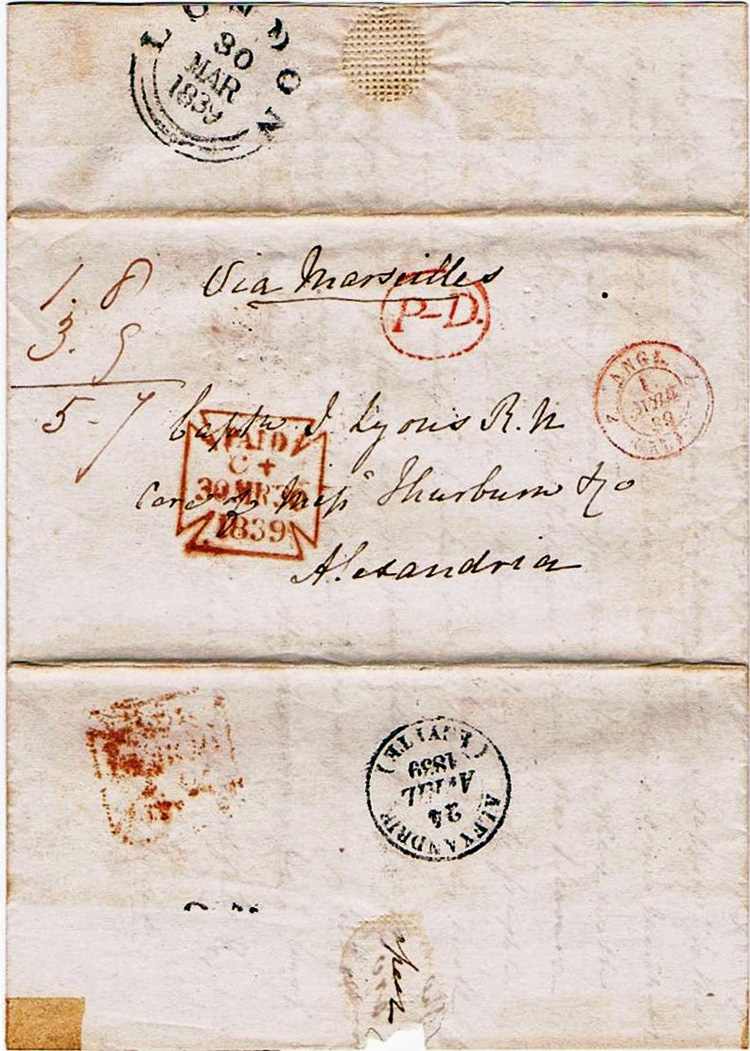 LONDON
30
MAR
1839
1. 8
3. 9
5 - 7
Via Marseilles
P-D.
ANGL.
CAL
PAID
C +
30 MR
1839
Captn J Lyons R. N
Care of Messrs Thurburn & Co
Alexandria
ALEXANDRIE
24
AVRIL
1839
(EGYPTE)